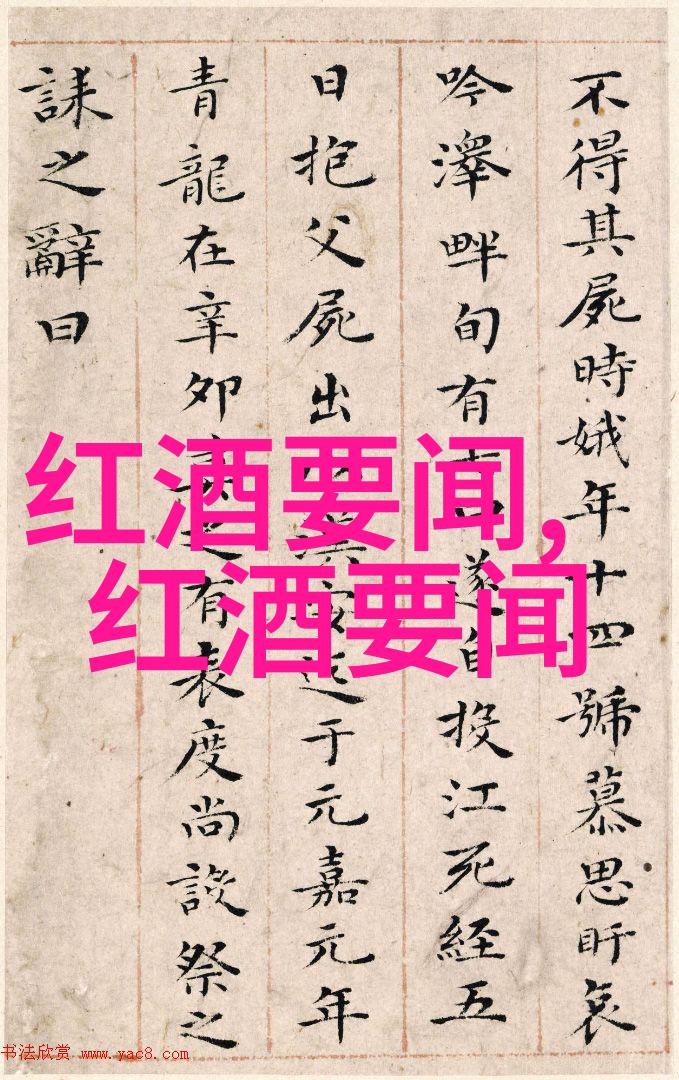 不得其屍時娥年十四號慕思盱哀
吟澤畔旬有遂自投江死經五
日抱父屍出漢安迄于元嘉元年
青龍在辛卯之有表度尚設祭之
誄之辭曰
红酒要闻,
红酒要闻
书法欣赏 www.yac8.com